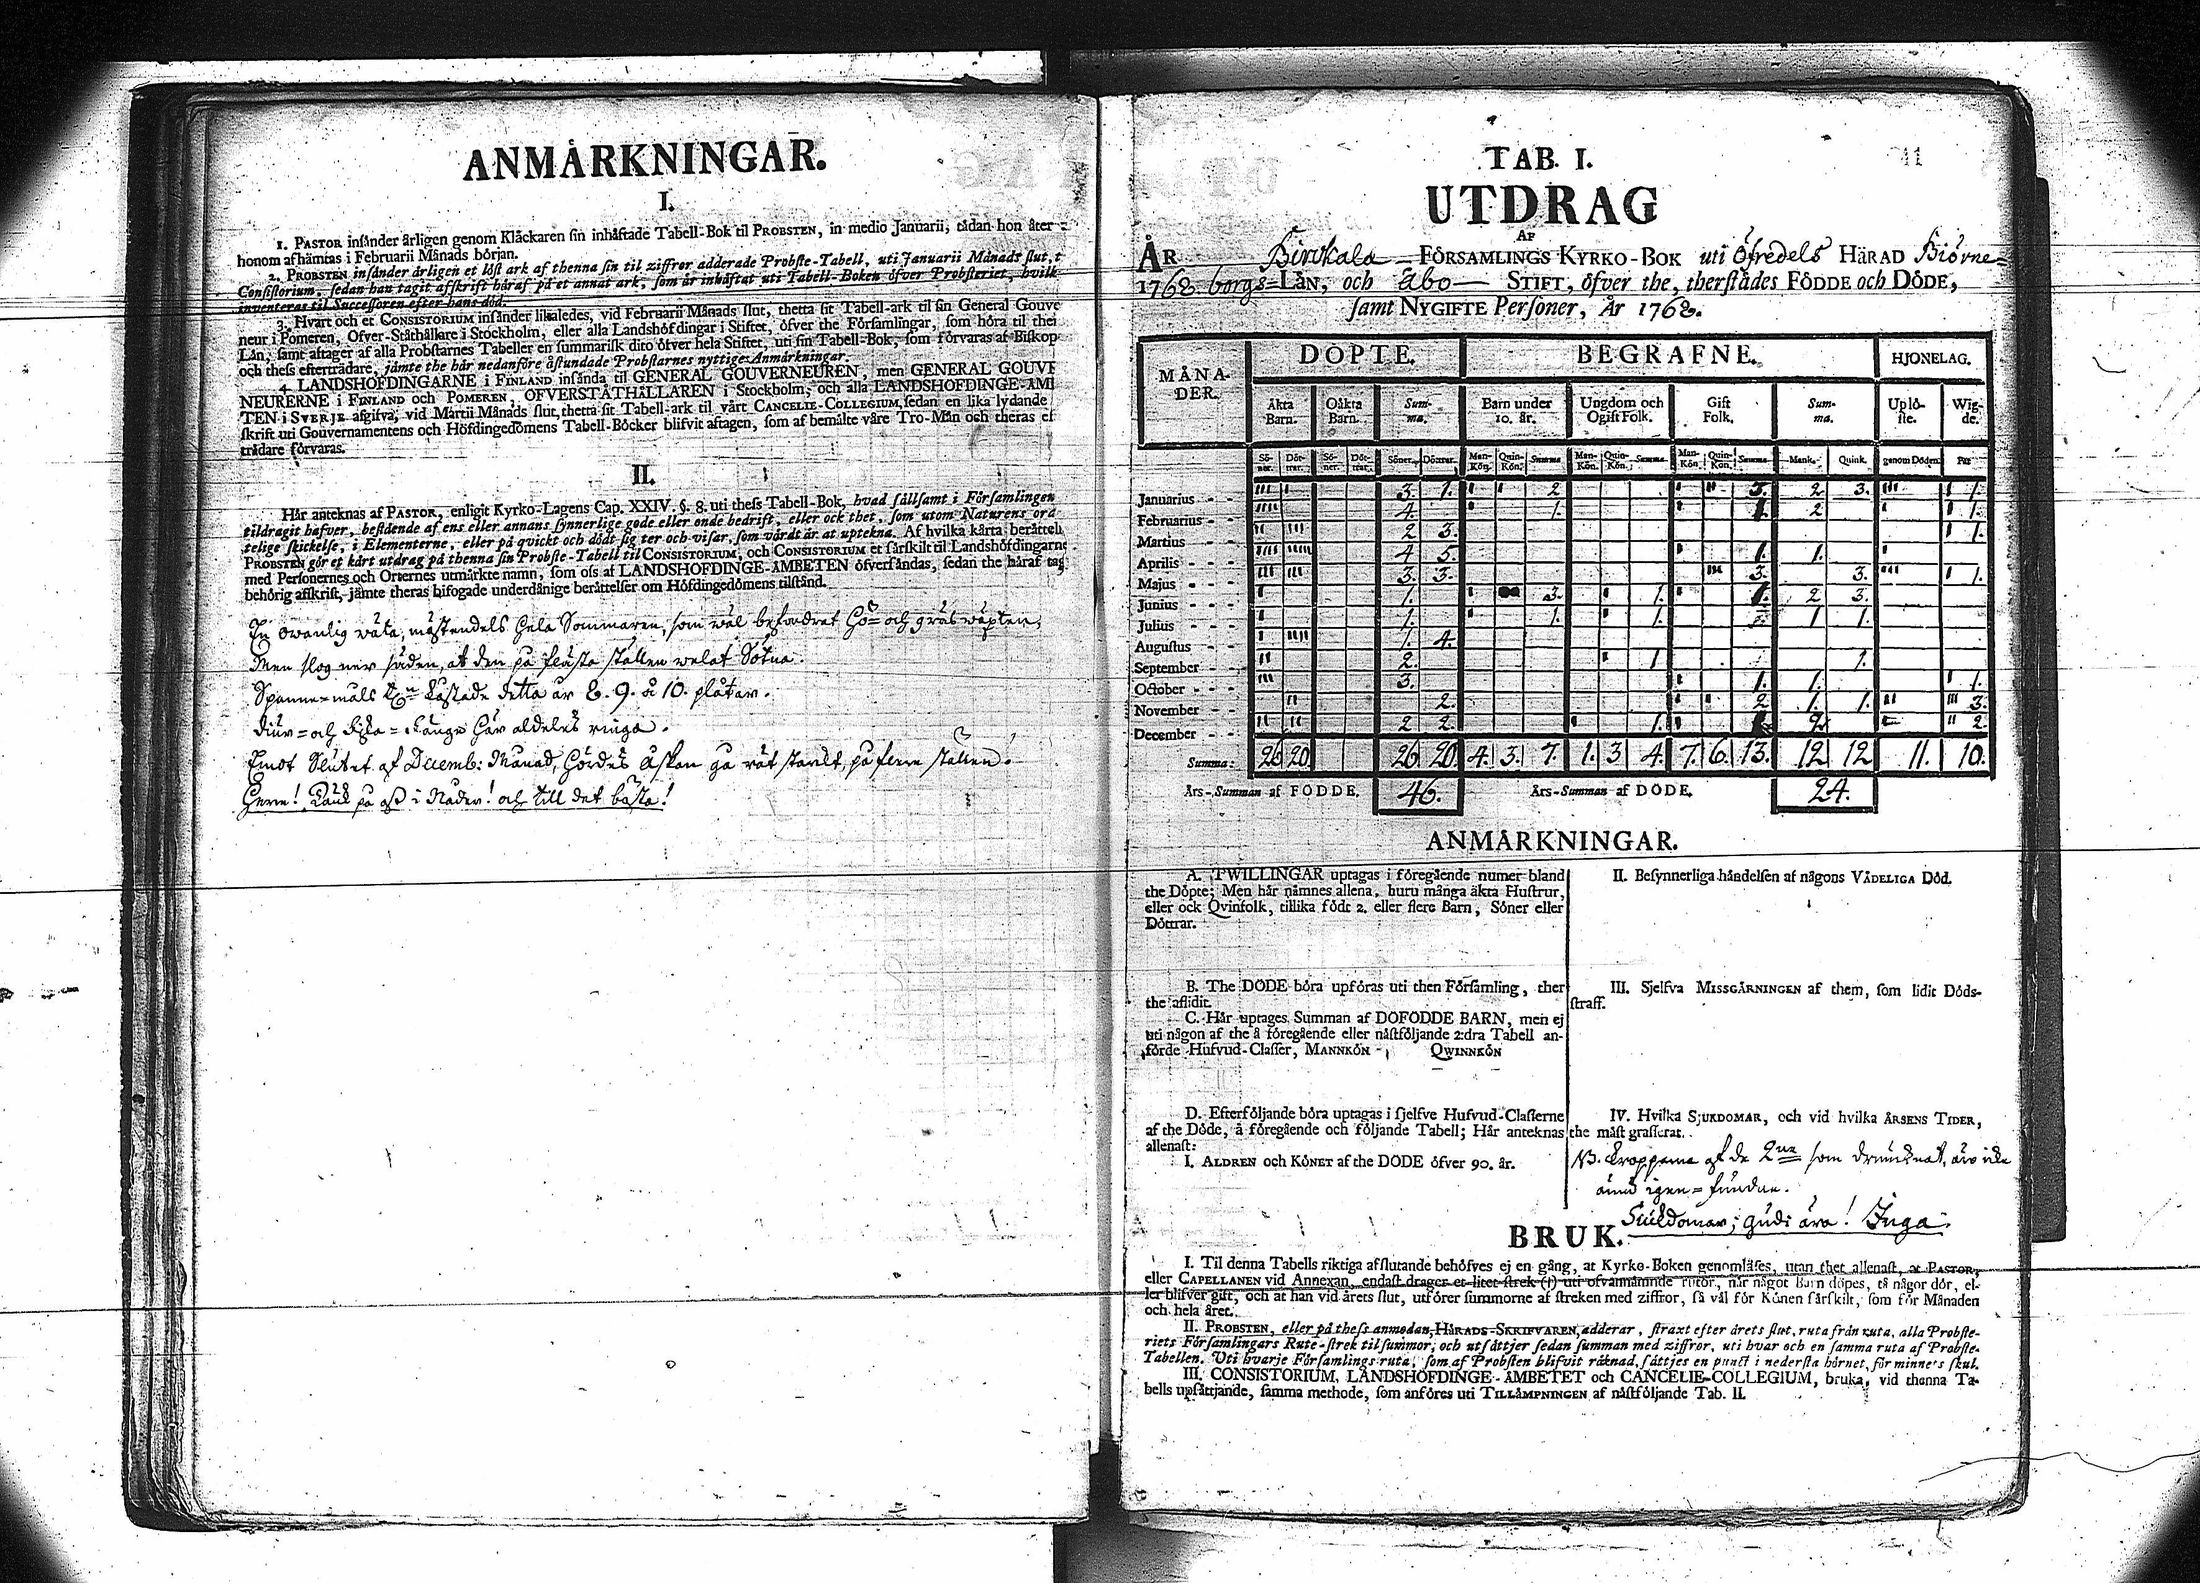 ANMÅRKNINGAR.
I.
1. PASTOR insånder årligen genom Klåckaren sin inhåftade Tabell-Bok til PROBSTEN, in medio Januarii, tådan hon åter
honom afhåmtas i Februarii Månads början.
2. PROBSTEN insånder årligen et löst ark af thenna sin til ziffror adderade Probste-Tabell, uti Januarii Månads slut, t
Consistorium, sedan han tagit afskrift håraf på et annat ark, som år inhåftat uti Tabell-Boken öfver Probsteriet, hvilk
inventeras til Successoren efter hans död.
3. Hvart och et CONSISTORIUM insånder likaledes, vid Februarii Månads slut, thetta sit Tabell-ark til sin General Gouve
neur i Pomeren, Öfver-Ståthållare i Stockholm, eller alla Landshöfdingar i Stiftet, öfver the Församlingar, som höra til thei
Lån, samt aftager af alla Probstarnes Tabeller en summarisk dito öfver hela Stiftet, uti sin Tabell-Bok, som förvaras af Biskop
och thess eftertrådare, jåmte the hår nedanföre åstundade Probstarnes nyttige Anmårkningar.
4. LANDSHÖFDINGARNE i FINLAND insånda til GENERAL GOUVERNEUREN, men GENERAL GOUVE
NEURERNE i FINLAND och POMEREN, ÖFVERSTÅTHÅLLAREN i Stockholm, och alla LANDSHÖFDINGE-ÅMB
TEN i SVERJE afgifva, vid Martii Månads slut, thetta sit Tabell-ark til vårt CANCELIE-COLLEGIUM, sedan en lika lydande
skrift uti Gouvernamentens och Höfdingedömens Tabell-Böcker blifvit aftagen, som af bemålte våre Tro-Mån och theras ef
trådare förvaras.
II.
Hår anteknas af PASTOR, enligit Kyrko-Lagens Cap. XXIV. §. 8. uti thess Tabell-Bok, hvad sållsamt i Församlingen
tildragit hafver, bestående af ens eller annans synnerlige gode eller onde bedrift, eller ock thet, som utom Naturens ord
telige skickelse, i Elementerne, eller på qvickt och dödt sig ter och visar, som vårdt år at uptekna. Af hvilka kårta beråttel
PROBSTEN gör et kårt utdrag på thenna sin Probste-Tabell til CONSISTORIUM, och CONSISTORIUM et sårskilt til Landshöfdingarne
med Personernes och Orternes utmårkte namn, som oss af LANDSHÖFDINGE-ÅMBETEN öfversåndas, sedan the håraf tag
behörig afskrift, jåmte theras bifogade underdånige beråttelser om Höfdingedömens tilstånd.
En owanlig wåta, måstendels hela Sommaren, som wål befordrat Hö= och gråswåxten,
Men slog ner såden, at den på flåsta stållen welat
Spanne=måls kåstade detta år 8. 9. å 10. plåtar.
Diur= och fiske=fånge har aldeles ringa.
Emot Slutet af Decemb: Månad, hördes Åskan gå rått starkt, på flere stållen.
Herre! på oss i Nåder! och till det båsta!
41
TAB. I.
UTDRAG
AF
ÅR Birckala FÖRSAMLINGS KYRKO-BOK uti Öfredels HÅRAD Biörne=
1768 borgs=LÅN, och Åbo STIFT, öfver the, therstådes FÖDDE och DÖDE,
samt NYGIFTE Personer, År 1768.
MÅNADER. DÖPTE. BEGRAFNE. HJONELAG.
Åkta Barn. Oåkta Barn. Summa. Barn under 10. år. Ungdom och Ogift Folk. Gift Folk. Summa. Uplöste. Wigde.
Söner. Döttrar. Söner. Döttrar. Söner. Döttrar. Man-Kön. Quin-Kön. Summa Man-Kön. Quin-Kön. Summa Man-Kön. Quin-Kön. Summa Mank. Quink. genom Döden. Par
Januarius - - 3. 1. 2 3. 2 3. 1.
Februarius - - 4. 1. 1. 2 1.
Martius - - - 2 3. 1.
Aprilis - - - 4 5. 1. 1.
Majus - - - 3. 3. 3. 3. 1.
Junius - - - 1. 3. 1. 1. 2 3.
Julius - - - 1. 1. 1. 1 1.
Augustus - - 1. 4.
September - - 2. 1 1.
October - - - 3. 1. 1. 1.
November - - 2. 2 1. 1. 3.
December - - 2 2. 1. 2. 2
Summa: 26 20 26 20. 4. 3. 7. 1. 3 4. 7. 6. 13. 12 12 11. 10.
Års-Summan af FÖDDE. 46. Års-Summan af DÖDE. 24.
ANMÅRKNINGAR.
A. TWILLINGAR uptagas i föregående numer bland
the Döpte; Men hår nåmnes allena, huru många åkta Hustrur,
eller ock Qvinfolk, tillika födt 2. eller flere Barn, Söner eller
Döttrar.
B. The DÖDE böra upföras uti then Församling, ther
the aflidit.
C. Hår uptages Summan af DÖFÖDDE BARN, men ej
uti någon af the å föregående eller nåstföljande 2:dra Tabell an-
förde Hufvud-Classer, MANNKÖN - , QWINNKÖN
D. Efterföljande böra uptagas i sjelfve Hufvud-Classerne
af the Döde, å föregående och följande Tabell; Hår anteknas
allenast:
I. ÅLDREN och KÖNET af the DÖDE öfver 90. år.
II. Besynnerliga håndelsen af någons VÅDELIGA Död.
III. Sjelfva MISSGÅRNINGEN af them, som lidit Döds-
straff.
IV. Hvilka SJUKDOMAR, och vid hvilka ÅRSENS TIDER,
the måst grasserat.
NB. Kropparna af de 2ne som drunknat, åro icke
ånnu igen=fundne.
Siukdomar, gudi åra! Inga.
BRUK.
I. Til denna Tabells riktiga afslutande behöfves ej en gång, at Kyrko-Boken genomlåses, utan thet allenast, at PASTOR,
eller CAPELLANEN vid Annexan, endast drager et litet strek (I) uti ofvannåmnde rutor, når något Barn döpes, tå någor dör, el-
ler blifver gift, och at han vid årets slut, utförer summorne af streken med ziffror, så vål för Könen sårskilt, som för Månaden
och hela året.
II. PROBSTEN, eller på thess anmodan, HÅRADS-SKRIFVAREN, adderar, straxt efter årets slut, ruta från ruta, alla Probste-
riets Församlingars Rute-strek tilsummor, och utsåttjer sedan summan med ziffror, uti hvar och en samma ruta af Probste-
Tabellen. Uti hvarje Församlings ruta, som af Probsten blifvit råknad, såttjes en punct i nedersta hörnet, för minnets skul.
III. CONSISTORIUM, LANDSHÖFDINGE-ÅMBETET och CANCELIE-COLLEGIUM, bruka, vid thenna Ta-
bells upsåttjande, samma methode, som anföres uti TILLÅMPNINGEN af nåstföljande Tab. II.